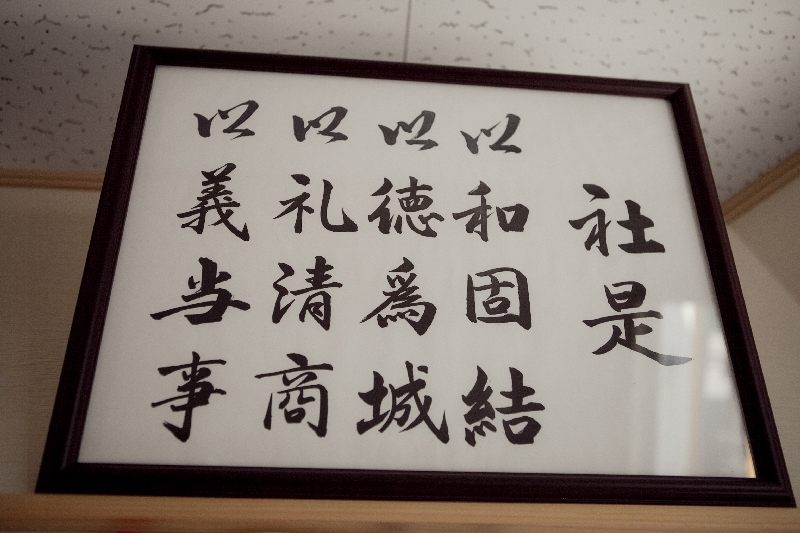 社是
以和固結
以徳為城
以礼清商
以義当事